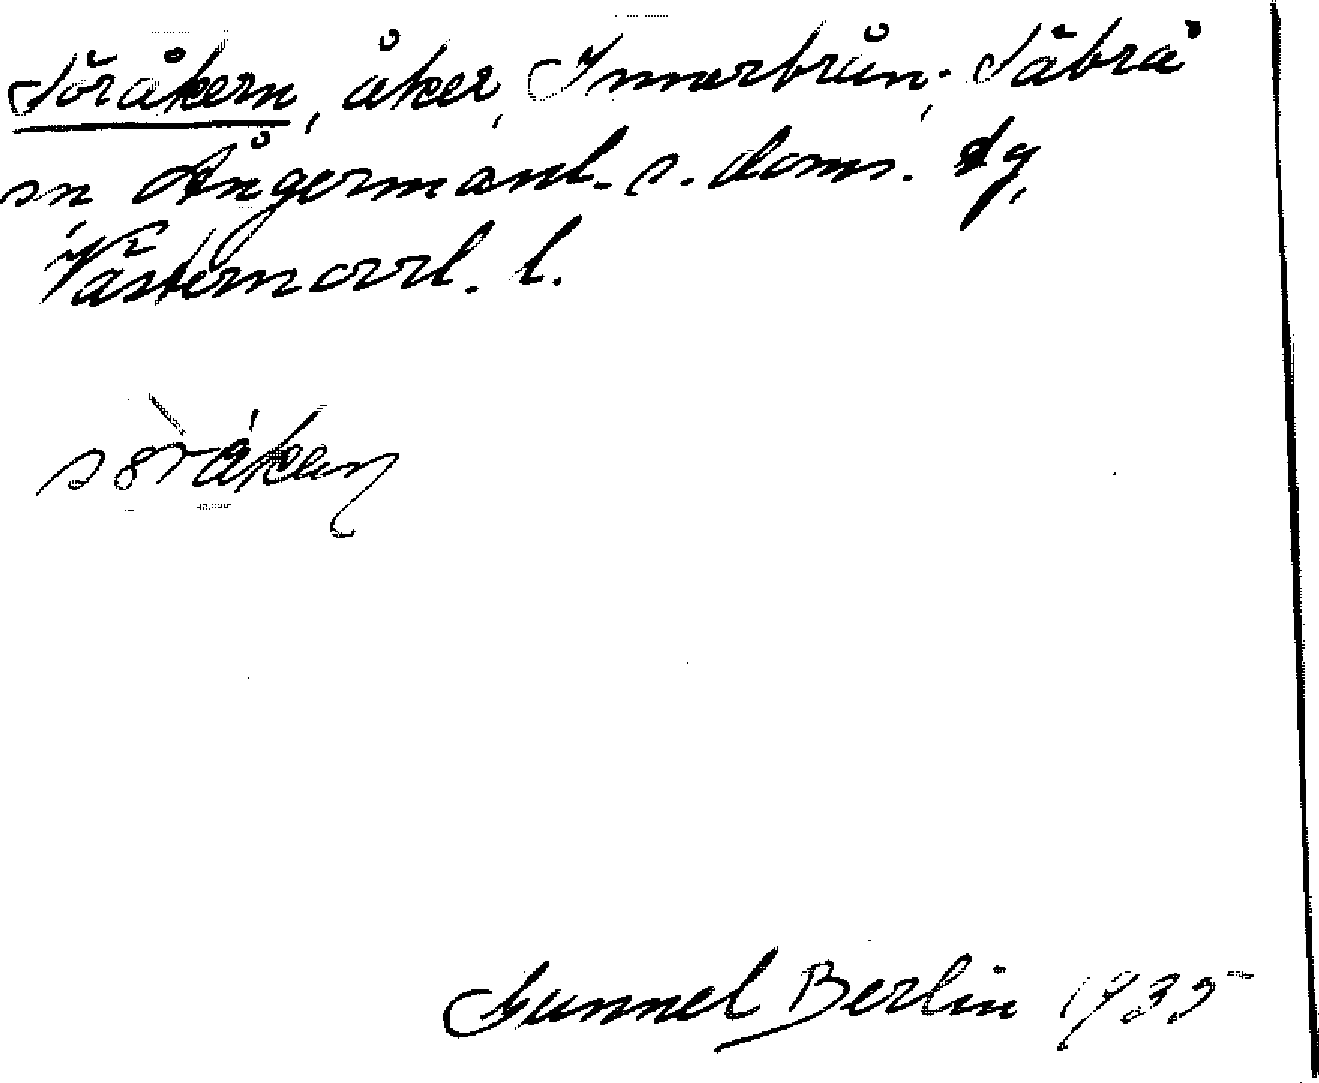 Söråkern, åker, Innerbrån, Säbrå
sn, Ångermanl. s. doms. dg,
Västernorrl. l.
sö̀råken
Gunnel Berlin 1935